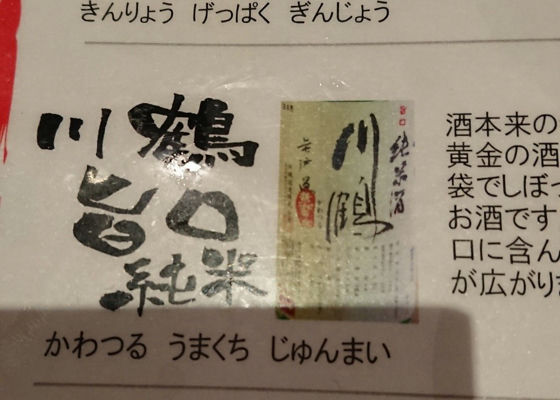 きんりょう げっぱく ぎんじょう
川鶴
旨口
純米
旨口
純米酒
川鶴
かわつる うまくち じゅんまい
酒本来の
黄金の酒
袋でしぼっ
お酒です
口に含ん
が広がりま